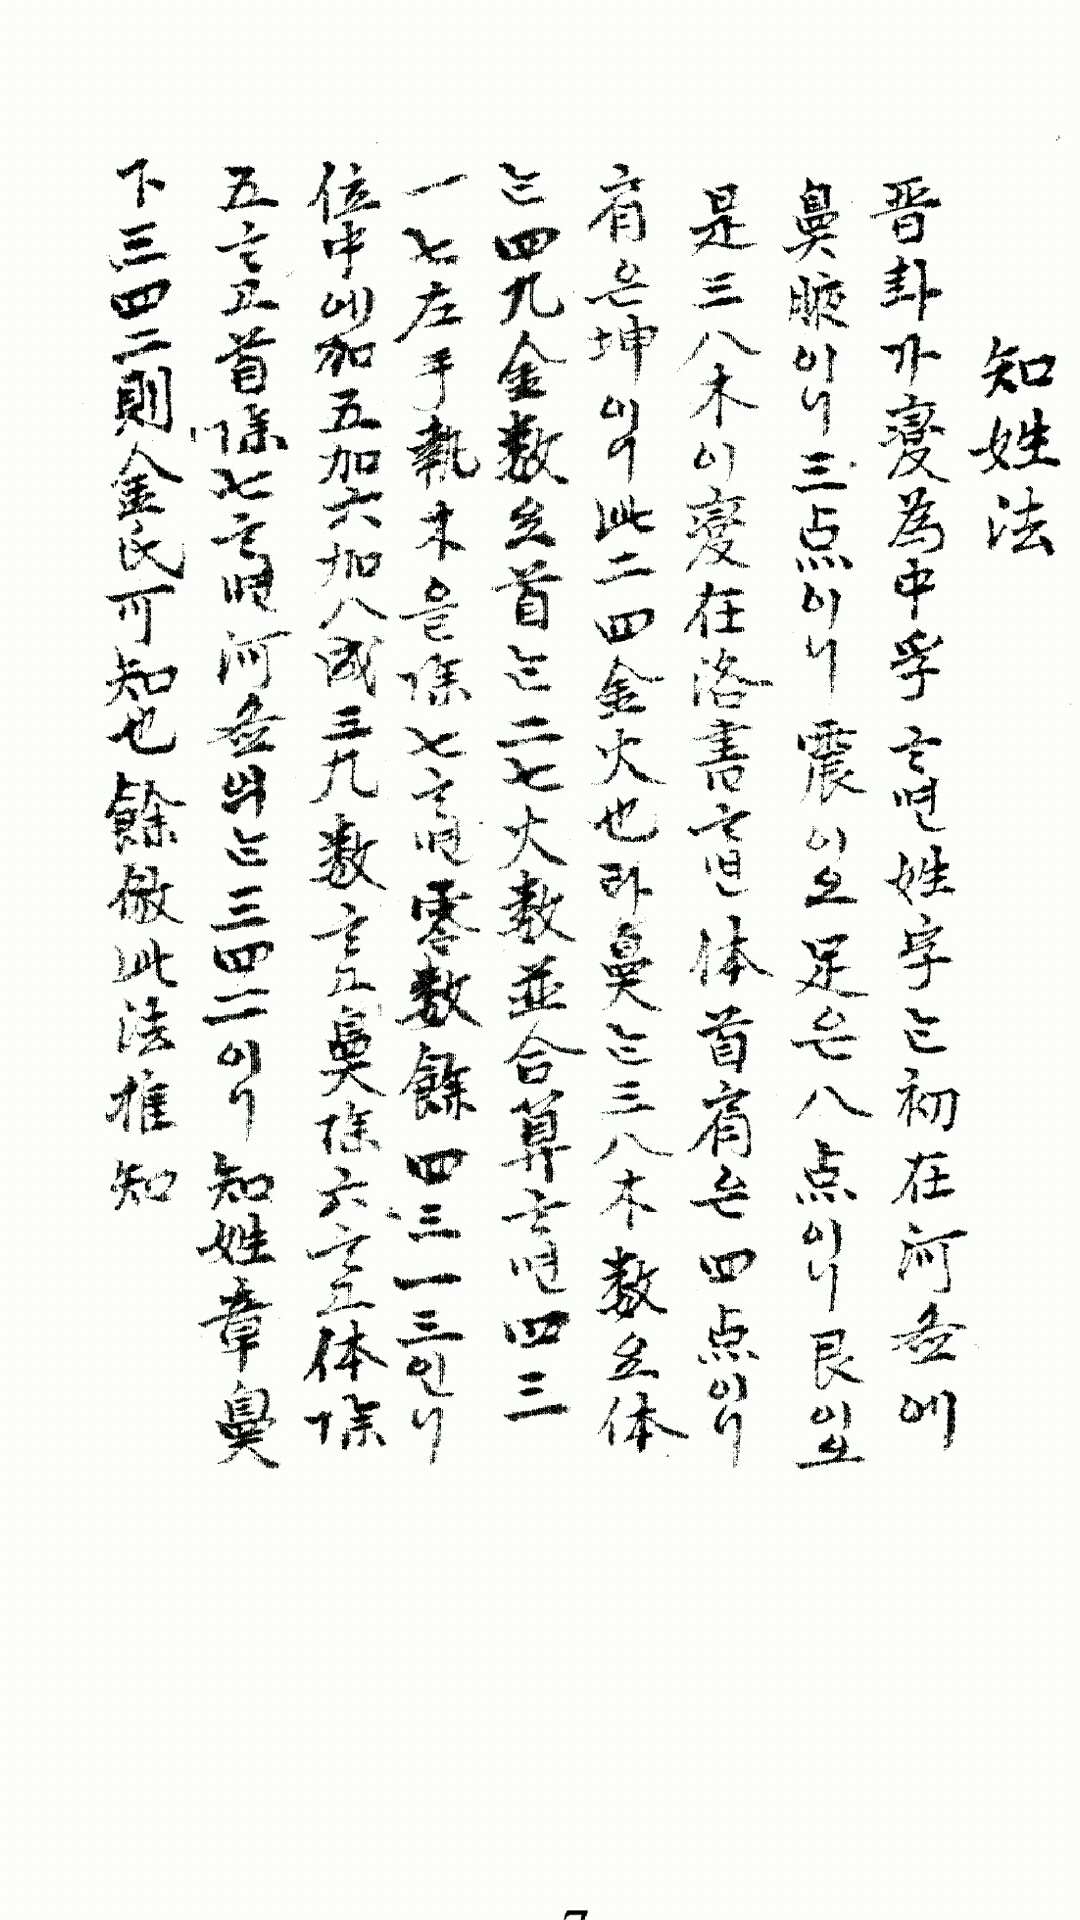 知姓法
晋卦가變為中孚하면姓字는初在河圖에
鼻腋이니三点이니震이오足은八点이니艮이오
是三八木이變在洛書하면体首肩은四点이니
肩은坤이이此二四金火也라鼻는三八木數오体
는四九金數오首는二七火數並合算하면四三
一七左手執木을除七하면零數餘四三一三인니
位中에加五加六加八成三九數하고鼻除六하고体除
五하고首除七하면河圖의는三四二이니知姓章鼻
下三四二則金氏可知也餘倣此法推知